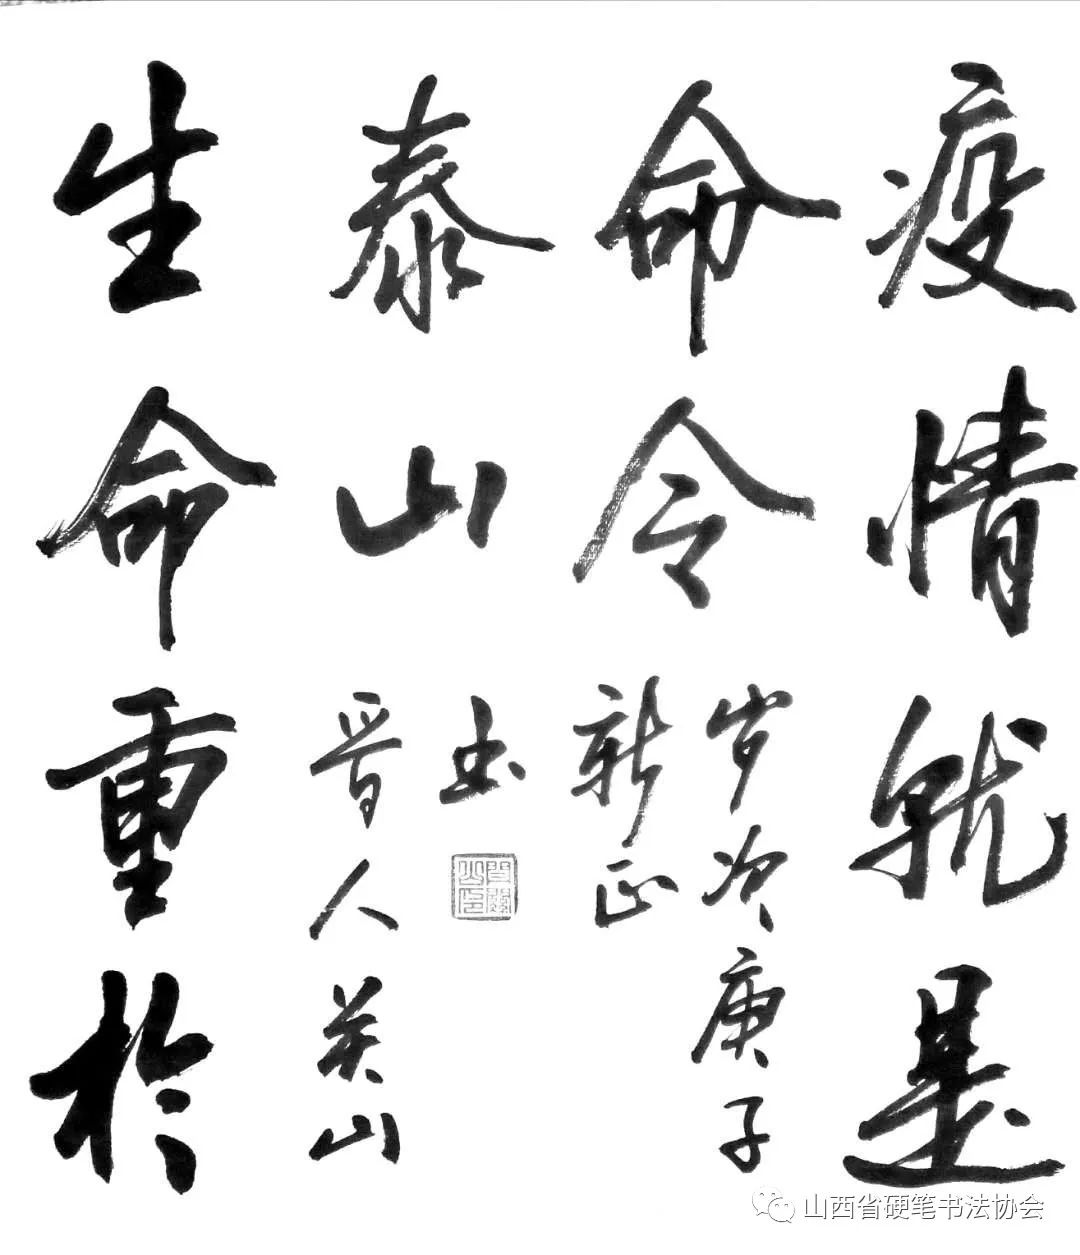 疫情就是
命令
生命重於
泰山
岁次庚子
新正
晋人关山
书
山西省硬笔书法协会